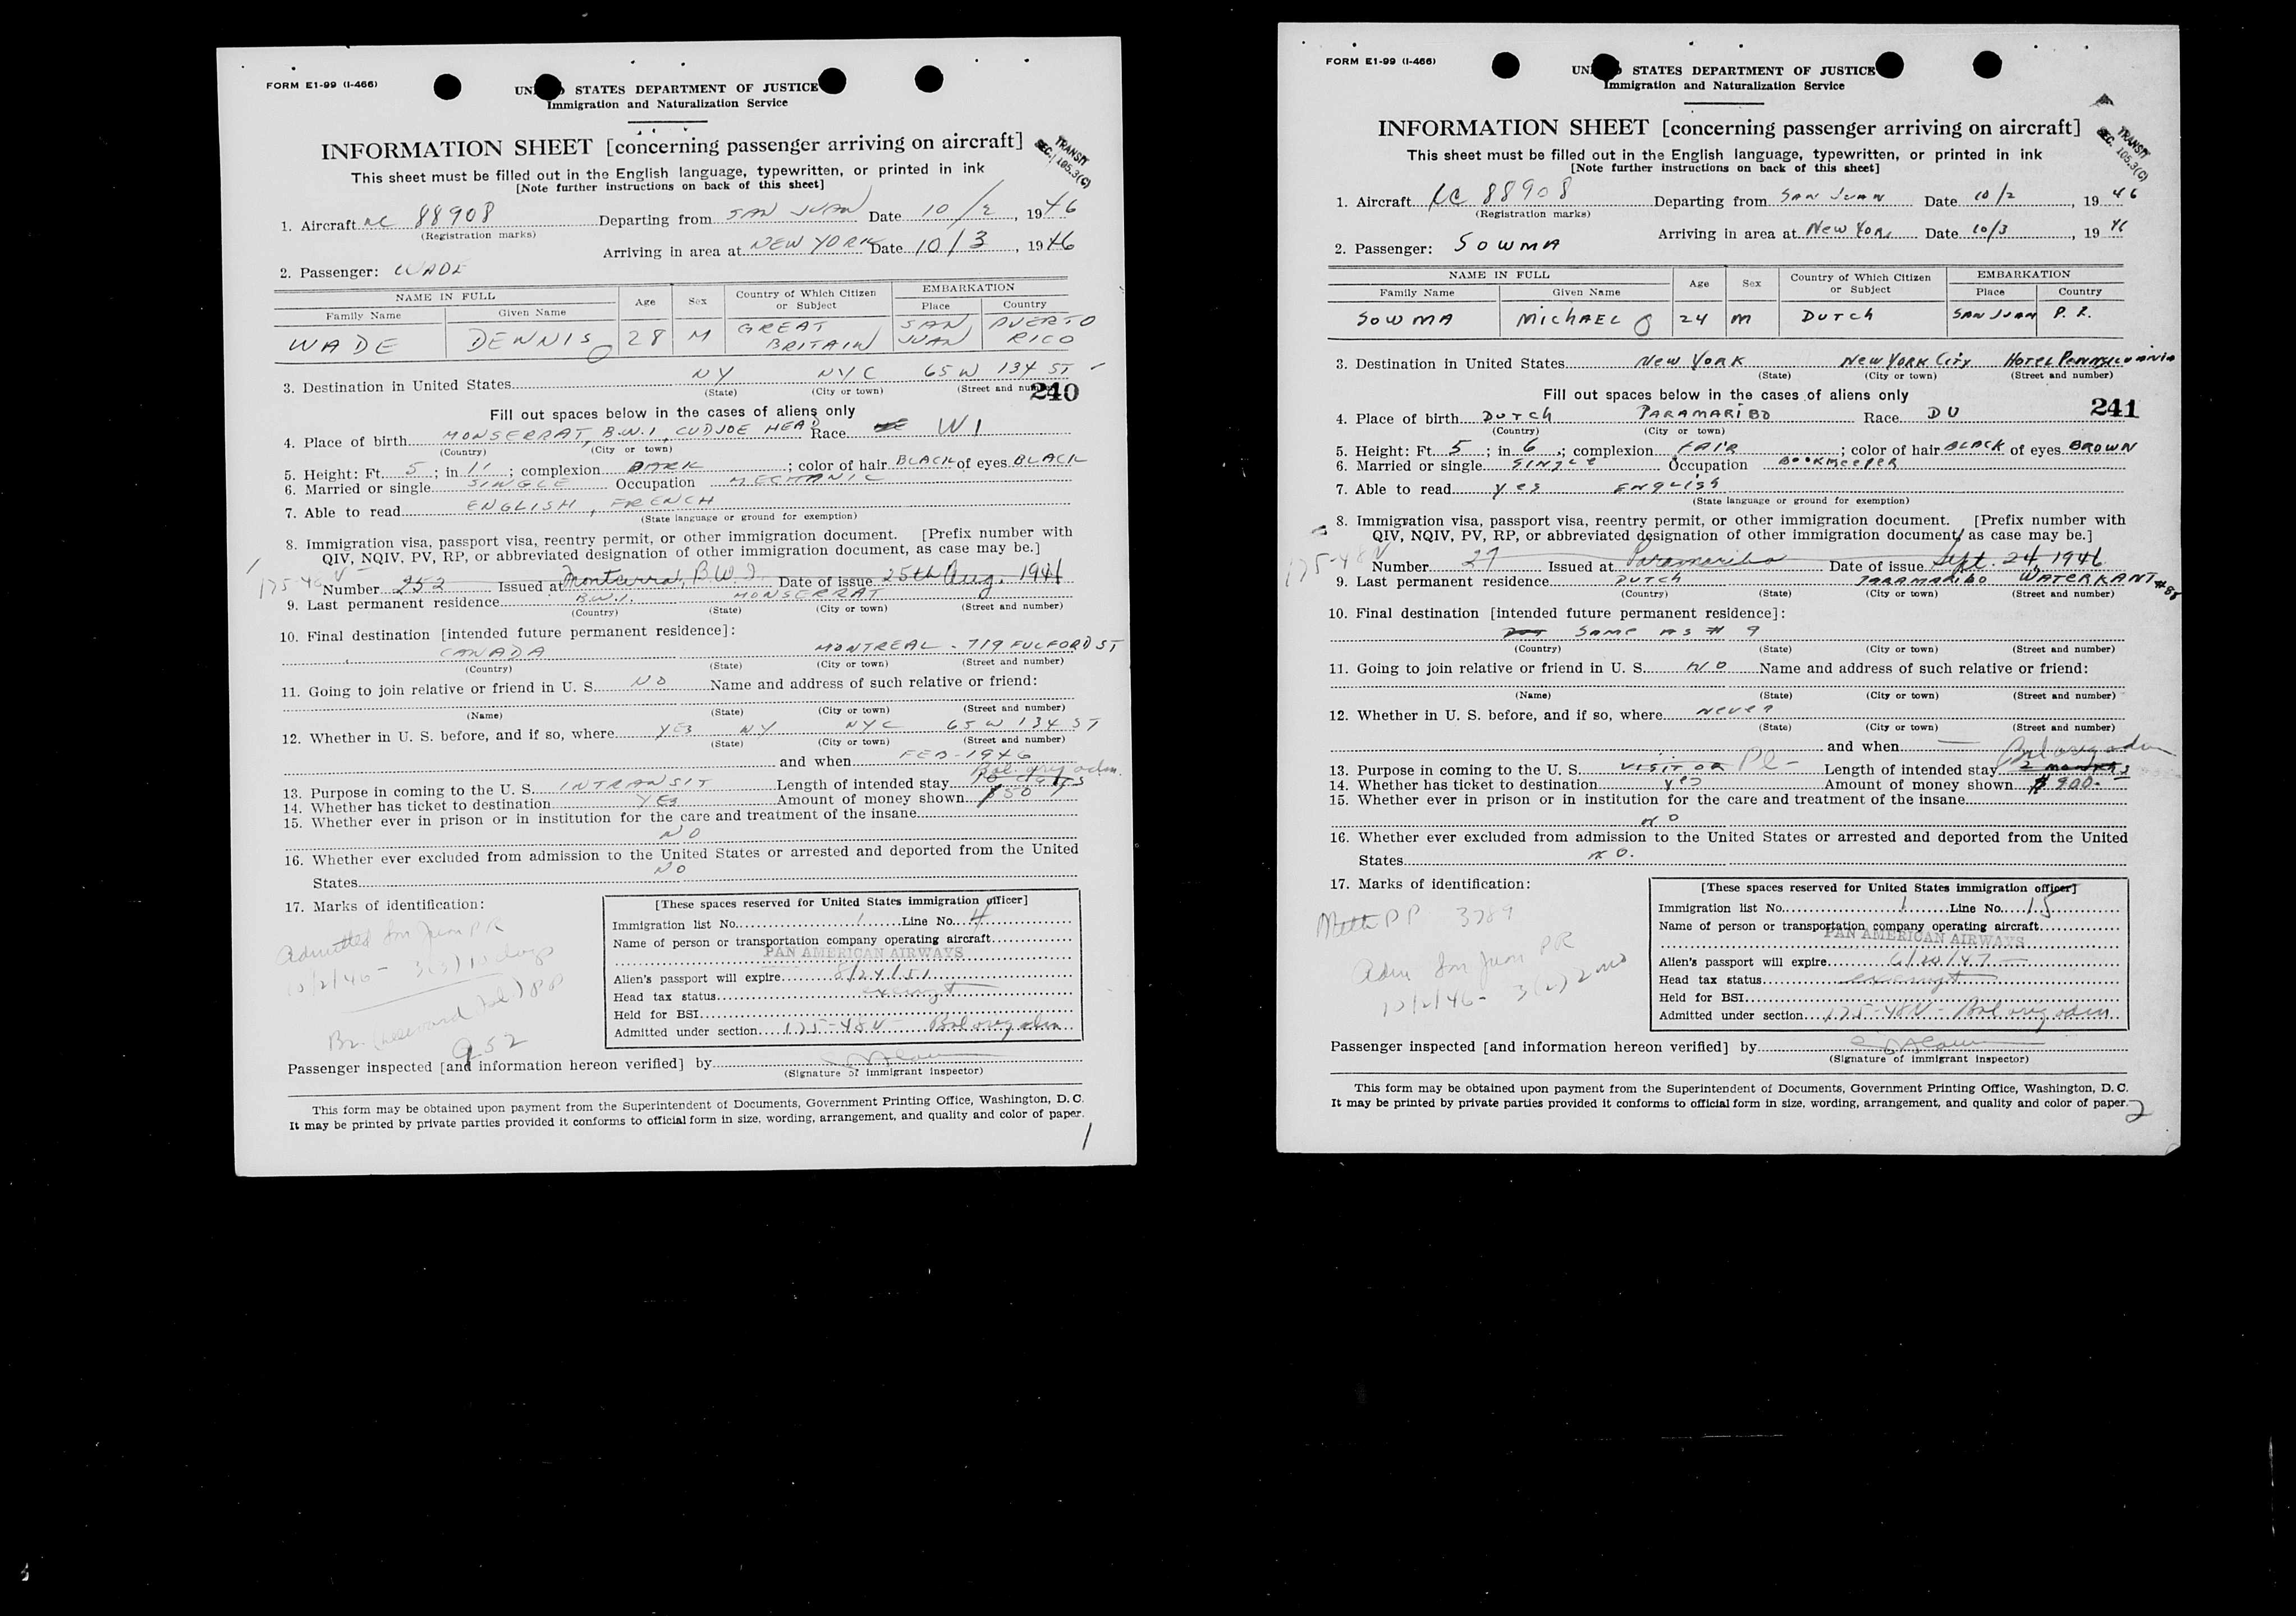 FORM E1-99 (I-466)
UN STATES DEPARTMENT OF JUSTICE
Immigration and Naturalization Service
INFORMATION SHEET [concerning passenger arriving on aircraft]
TRANSIT
SEC. 105.3(C)
This sheet must be filled out in the English language, typewritten, or printed in ink
[Note further instructions on back of this sheet]
1. Aircraft NC 88908 Departing from SAN JUAN Date 10/2, 1946
(Registration marks)
Arriving in area at NEW YORK Date 10/3, 1946
2. Passenger: WADE
NAME IN FULL Age Sex Country of Which Citizen or Subject EMBARKATION
Family Name Given Name Place Country
WADE DENNIS 28 M GREAT BRITAIN SAN JUAN PUERTO RICO
3. Destination in United States NY NYC 65 W 134 ST
(State) (City or town) (Street and number)
240
Fill out spaces below in the cases of aliens only
4. Place of birth MONSERRAT, B.W.I, CUDJOE HEAD Race WI
(Country) (City or town)
5. Height: Ft. 5; in 11; complexion DARK; color of hair BLACK of eyes BLACK
6. Married or single SINGLE Occupation MECHANIC
7. Able to read ENGLISH, FRENCH
(State language or ground for exemption)
8. Immigration visa, passport visa, reentry permit, or other immigration document. [Prefix number with
QIV, NQIV, PV, RP, or abbreviated designation of other immigration document, as case may be.]
Number 252 Issued at Montserrat, B.W.I. Date of issue 25th Aug. 1946
9. Last permanent residence B.W.I. MONSERRAT
(Country) (State) (City or town) (Street and number)
10. Final destination [intended future permanent residence]:
CANADA MONTREAL - 719 FULFORD ST
(Country) (State) (City or town) (Street and number)
11. Going to join relative or friend in U. S. NO Name and address of such relative or friend:
(Name) (State) (City or town) (Street and number)
12. Whether in U. S. before, and if so, where YES NY NYC 65 W 134 ST
(State) (City or town) (Street and number)
and when FEB-1946
13. Purpose in coming to the U. S. INTRANSIT Length of intended stay 10 days Bal. orig adm.
14. Whether has ticket to destination YES Amount of money shown $50
15. Whether ever in prison or in institution for the care and treatment of the insane
NO
16. Whether ever excluded from admission to the United States or arrested and deported from the United
States NO
17. Marks of identification:
Admitted San Juan PR
10/2/46 - 3(3) 10 days
252
[These spaces reserved for United States immigration officer]
Immigration list No. 1 Line No. 4
Name of person or transportation company operating aircraft
PAN AMERICAN AIRWAYS
Alien's passport will expire 8/24/51
Head tax status exempt
Held for BSI
Admitted under section 175-48V - Bal orig adm.
Passenger inspected [and information hereon verified] by
(Signature of immigrant inspector)
This form may be obtained upon payment from the Superintendent of Documents, Government Printing Office, Washington, D. C.
It may be printed by private parties provided it conforms to official form in size, wording, arrangement, and quality and color of paper.
1
FORM E1-99 (I-466)
UN STATES DEPARTMENT OF JUSTICE
Immigration and Naturalization Service
INFORMATION SHEET [concerning passenger arriving on aircraft]
TRANSIT
SEC. 105.3(C)
This sheet must be filled out in the English language, typewritten, or printed in ink
[Note further instructions on back of this sheet]
1. Aircraft NC 88908 Departing from SAN JUAN Date 10/2, 1946
(Registration marks)
Arriving in area at New York Date 10/3, 1946
2. Passenger: SOWMA
NAME IN FULL Age Sex Country of Which Citizen or Subject EMBARKATION
Family Name Given Name Place Country
SOWMA MICHAEL 24 M DUTCH SAN JUAN P. R.
3. Destination in United States New York New York City Hotel Pennsylvania
(State) (City or town) (Street and number)
Fill out spaces below in the cases of aliens only
4. Place of birth DUTCH PARAMARIBO Race DU
(Country) (City or town)
241
5. Height: Ft. 5; in 6; complexion FAIR; color of hair BLACK of eyes BROWN
6. Married or single SINGLE Occupation BOOKKEEPER
7. Able to read yes English
(State language or ground for exemption)
8. Immigration visa, passport visa, reentry permit, or other immigration document. [Prefix number with
QIV, NQIV, PV, RP, or abbreviated designation of other immigration document, as case may be.]
175-48V
Number 27 Issued at Paramaribo Date of issue Sept. 24, 1946
9. Last permanent residence DUTCH PARAMARIBO WATERKANT #88
(Country) (State) (City or town) (Street and number)
10. Final destination [intended future permanent residence]:
SAME AS # 9
(Country) (State) (City or town) (Street and number)
11. Going to join relative or friend in U. S. NO Name and address of such relative or friend:
(Name) (State) (City or town) (Street and number)
12. Whether in U. S. before, and if so, where never
(State) (City or town) (Street and number)
and when — Bal orig adm
13. Purpose in coming to the U. S. VISITOR Pl- Length of intended stay 2 months
14. Whether has ticket to destination yes Amount of money shown $900.-
15. Whether ever in prison or in institution for the care and treatment of the insane
NO
16. Whether ever excluded from admission to the United States or arrested and deported from the United
States NO.
17. Marks of identification:
Neth PP 3789
Adm San Juan PR
10/2/46 - 3(2) 2 mo
[These spaces reserved for United States immigration officer]
Immigration list No. 1 Line No. 15
Name of person or transportation company operating aircraft
PAN AMERICAN AIRWAYS
Alien's passport will expire 6/20/47
Head tax status exempt
Held for BSI
Admitted under section 175-48V - Bal orig adm
Passenger inspected [and information hereon verified] by
(Signature of immigrant inspector)
This form may be obtained upon payment from the Superintendent of Documents, Government Printing Office, Washington, D. C.
It may be printed by private parties provided it conforms to official form in size, wording, arrangement, and quality and color of paper.
2